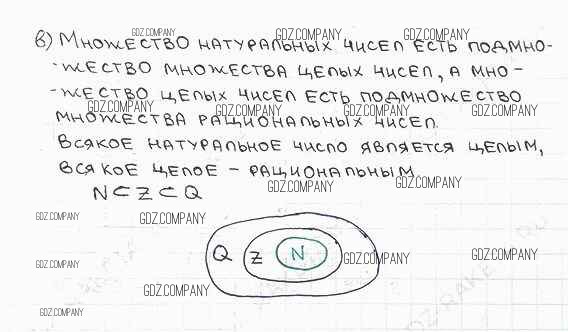 в) Множество натуральных чисел есть подмно-
-жество множества целых чисел, а мно-
-жество целых чисел есть подмножество
множества рациональных чисел.
Всякое натуральное число является целым,
всякое целое – рациональным
N ⊂ Z ⊂ Q
Q Z N
GDZ.COMPANY GDZ.COMPANY GDZ.COMPANY GDZ.COMPANY
GDZ.COMPANY GDZ.COMPANY GDZ.COMPANY GDZ.COMPANY
GDZ.COMPANY GDZ.COMPANY
GDZ.COMPANY GDZ.COMPANY
GDZ.COMPANY GDZ.COMPANY GDZ.COMPANY
GDZ.COMPANY
GDZ.COMPANY